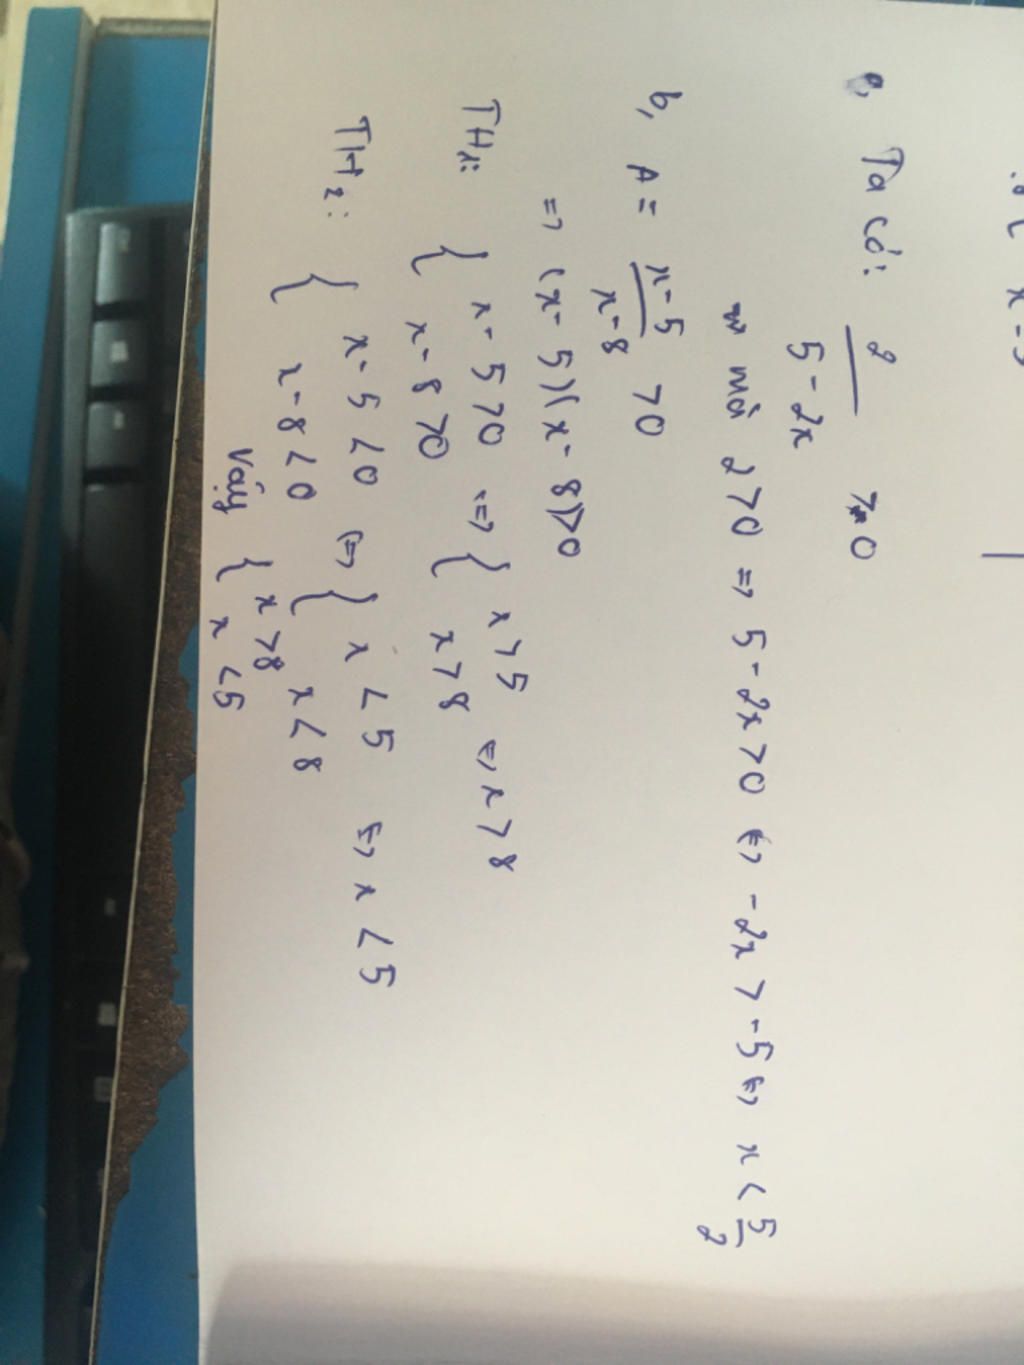 x-5
a, Ta có: 2/(5-2x) > 0
mà 2>0 => 5-2x>0 <=> -2x > -5 <=> x < 5/2
b, A = (x-5)/(x-8) >0
=> (x-5)(x-8)>0
TH1: { x-5>0 <=> { x>5 <=> x>8
x-8>0 x>8
TH2: { x-5<0 <=> { x<5 <=> x<5
x-8<0 x<8
Vậy { x>8
x<5